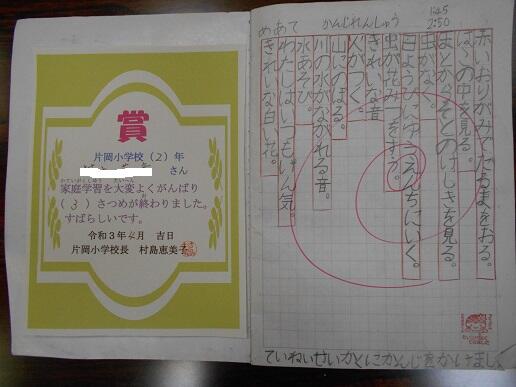 賞
片岡小学校(2)年
さん
かていがくしゅう たいへん
家庭学習を大変よくがんばり
(3)さつめが終わりました。
すばらしいです。
令和3年 月 吉日
片岡小学校長 村島恵美子
めあて かんじれんしゅう
1:45
2:50
赤いおりがみでだるまをおる。
はこの中を見る。
まどからそとのけしきを見る。
日ようびにゆうえんちにいく。
虫がなく。
虫がそみをする。
きれいな音
人がつく。
山にのぼる。
川の水がながれる音。
水あそび。
わたしはいつもげん気。
きれいな白い花。
ていねいせいかくにかんじをかけました